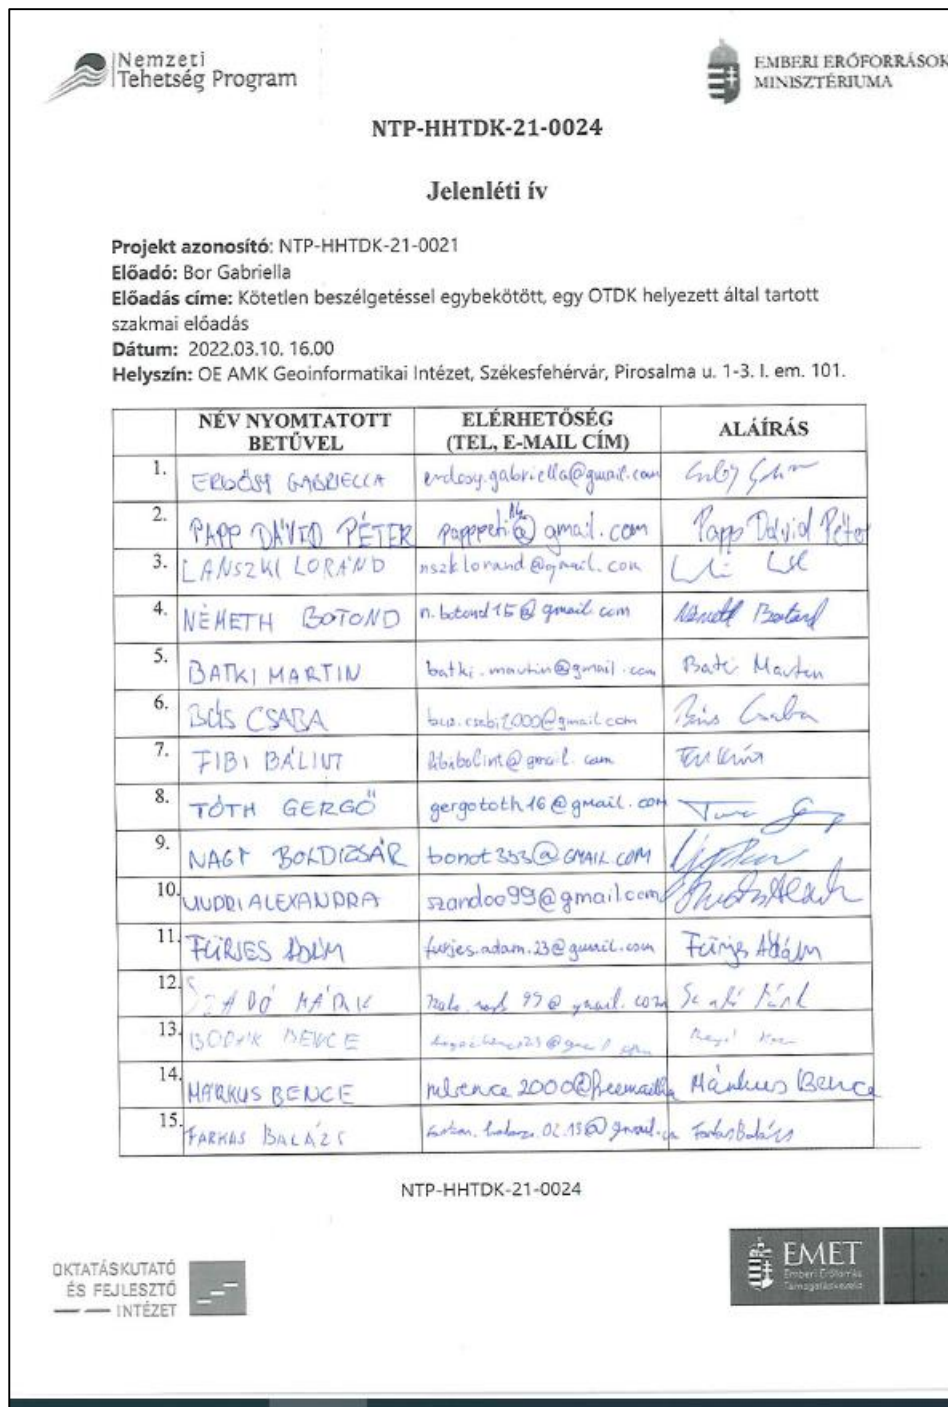 Nemzeti
Tehetség Program
EMBERI ERŐFORRÁSOK
MINISZTÉRIUMA
NTP-HHTDK-21-0024
Jelenléti ív
Projekt azonosító: NTP-HHTDK-21-0021
Előadó: Bor Gabriella
Előadás címe: Kötetlen beszélgetéssel egybekötött, egy OTDK helyezett által tartott
szakmai előadás
Dátum: 2022.03.10. 16.00
Helyszín: OE AMK Geoinformatikai Intézet, Székesfehérvár, Pirosalma u. 1-3. I. em. 101.
NÉV NYOMTATOTT BETŰVEL ELÉRHETŐSÉG (TEL, E-MAIL CÍM) ALÁÍRÁS
1. ERDŐSY GABRIELLA erdosy.gabriella@gmail.com
2. PAPP DÁVID PÉTER @gmail.com Papp Dávid Péter
3. LANSZKI LORÁND nszklorand@gmail.com
4. NÉMETH BOTOND n.botond15@gmail.com Németh Botond
5. BATKI MARTIN batki.martin@gmail.com Batki Martin
6. BÚS CSABA bus.csabi2000@gmail.com Bús Csaba
7. FIBI BÁLINT fibibalint@gmail.com
8. TÓTH GERGŐ gergototh16@gmail.com
9. NAGY BOLDIZSÁR bonot353@GMAIL.COM
10. ALEXANDRA szandoo99@gmail.com
11. FÜRJES ÁDÁM furjes.adam.23@gmail.com Fürjes Ádám
12. SZABÓ MÁRK @gmail.com Szabó Márk
13. BENCE
14. MÁRKUS BENCE Márkus Bence
15. FARKAS BALÁZS farkas.balazs.02.15@gmail.com Farkas Balázs
NTP-HHTDK-21-0024
OKTATÁSKUTATÓ
ÉS FEJLESZTŐ
INTÉZET
EMET
Emberi Erőforrás
Támogatáskezelő